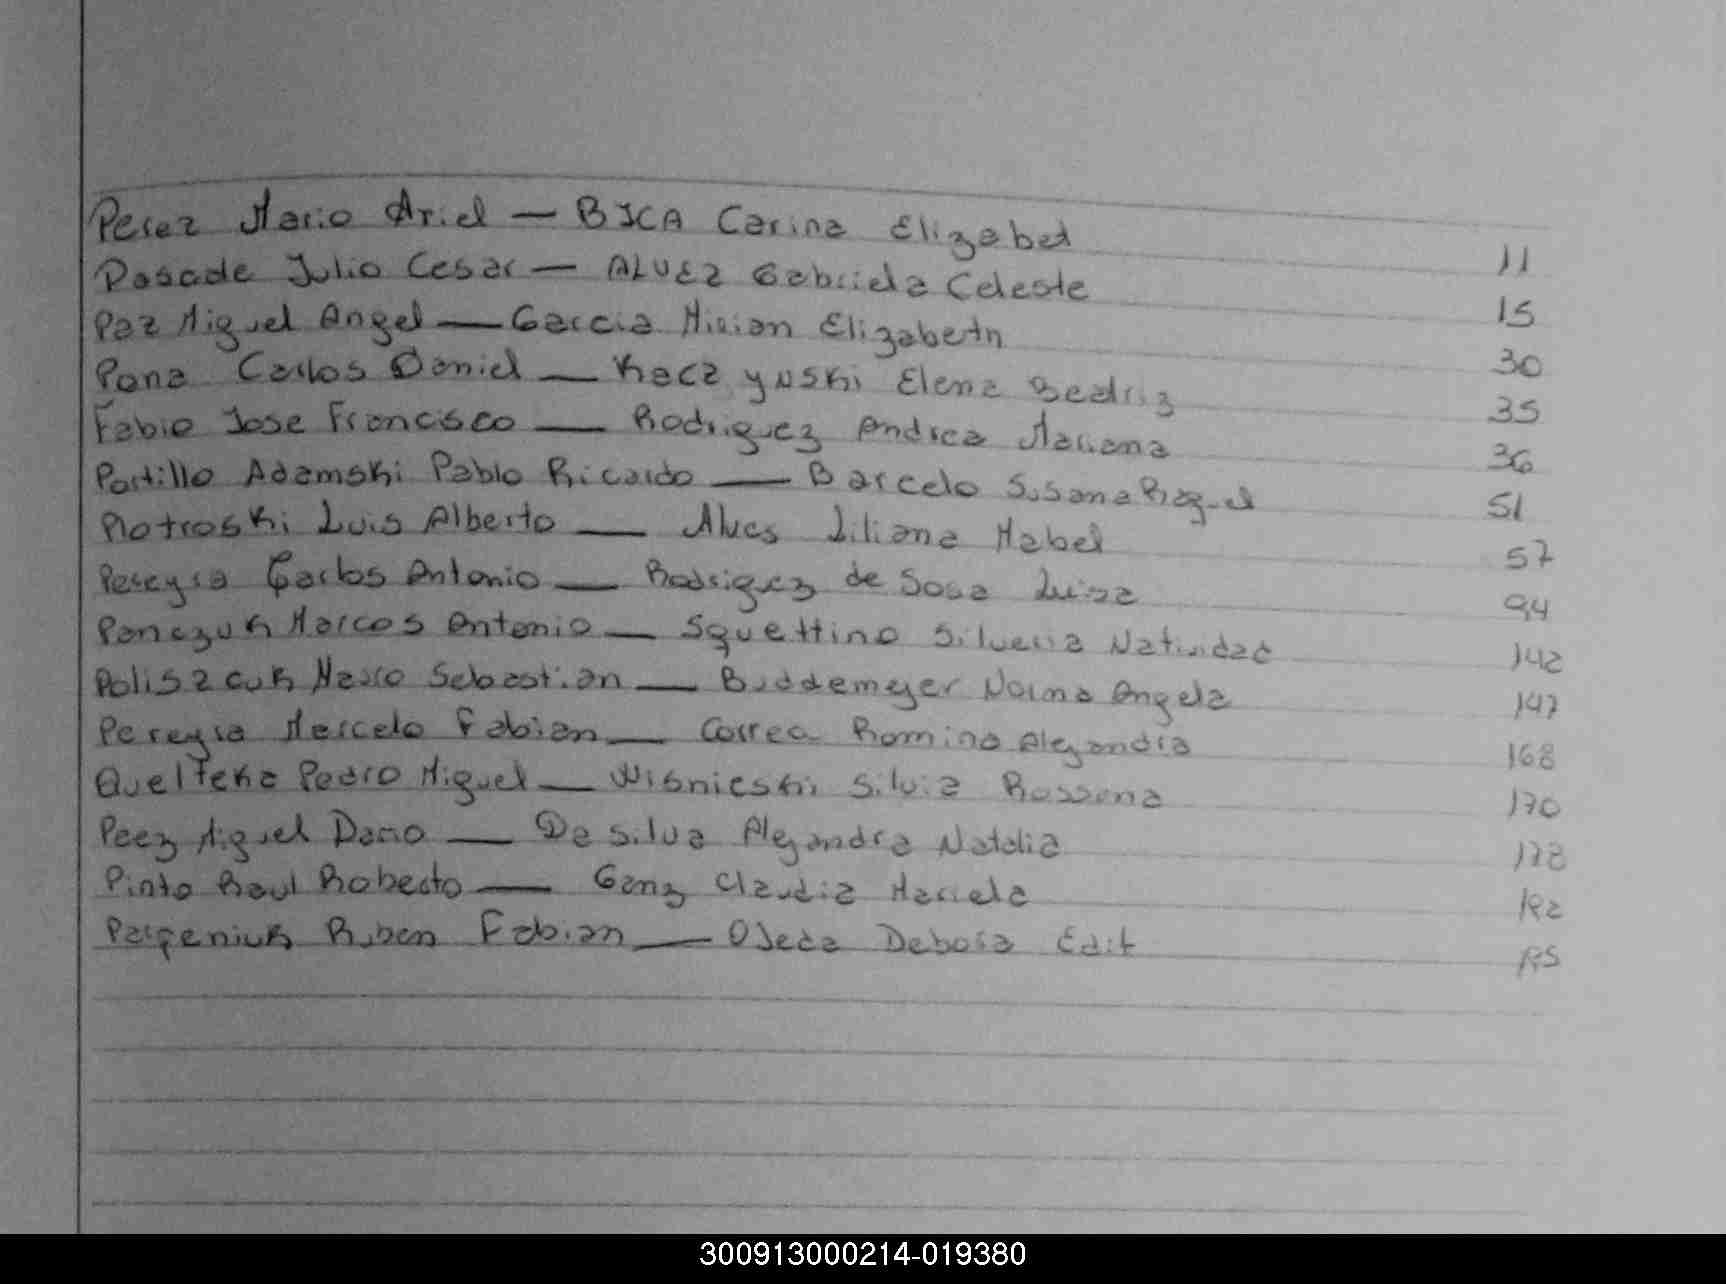 Perez Mario Ariel — BICA Carina Elizabet 11
Pascale Julio Cesar — ALVEZ Gabriela Celeste 15
Paz Miguel Angel — Garcia Mirian Elizabeth 30
Pana Carlos Daniel — Kaczynski Elena Beatriz 35
Fabio Jose Francisco — Rodriguez Andrea Mariana 36
Portillo Adamski Pablo Ricardo — Barcelo Susana Raquel 51
Piotroski Luis Alberto — Alves Liliana Mabel 57
Pereyra Carlos Antonio — Rodriguez de Sosa Luisa 94
Panczuk Marcos Antonio — Squettino Silveria Natividad 142
Poliszcuk Marco Sebastian — Buddemeyer Norma Angela 147
Pereyra Marcelo Fabian — Correa Romina Alejandra 168
Pedro Miguel — Wisnieski Silvia Rossana 170
Peez Miguel Dario — Da Silva Alejandra Natalia 178
Pinto Raul Roberto — Ganz Claudia Mariela 182
Ruben Fabian — Ojeda Debora Edit
300913000214-019380